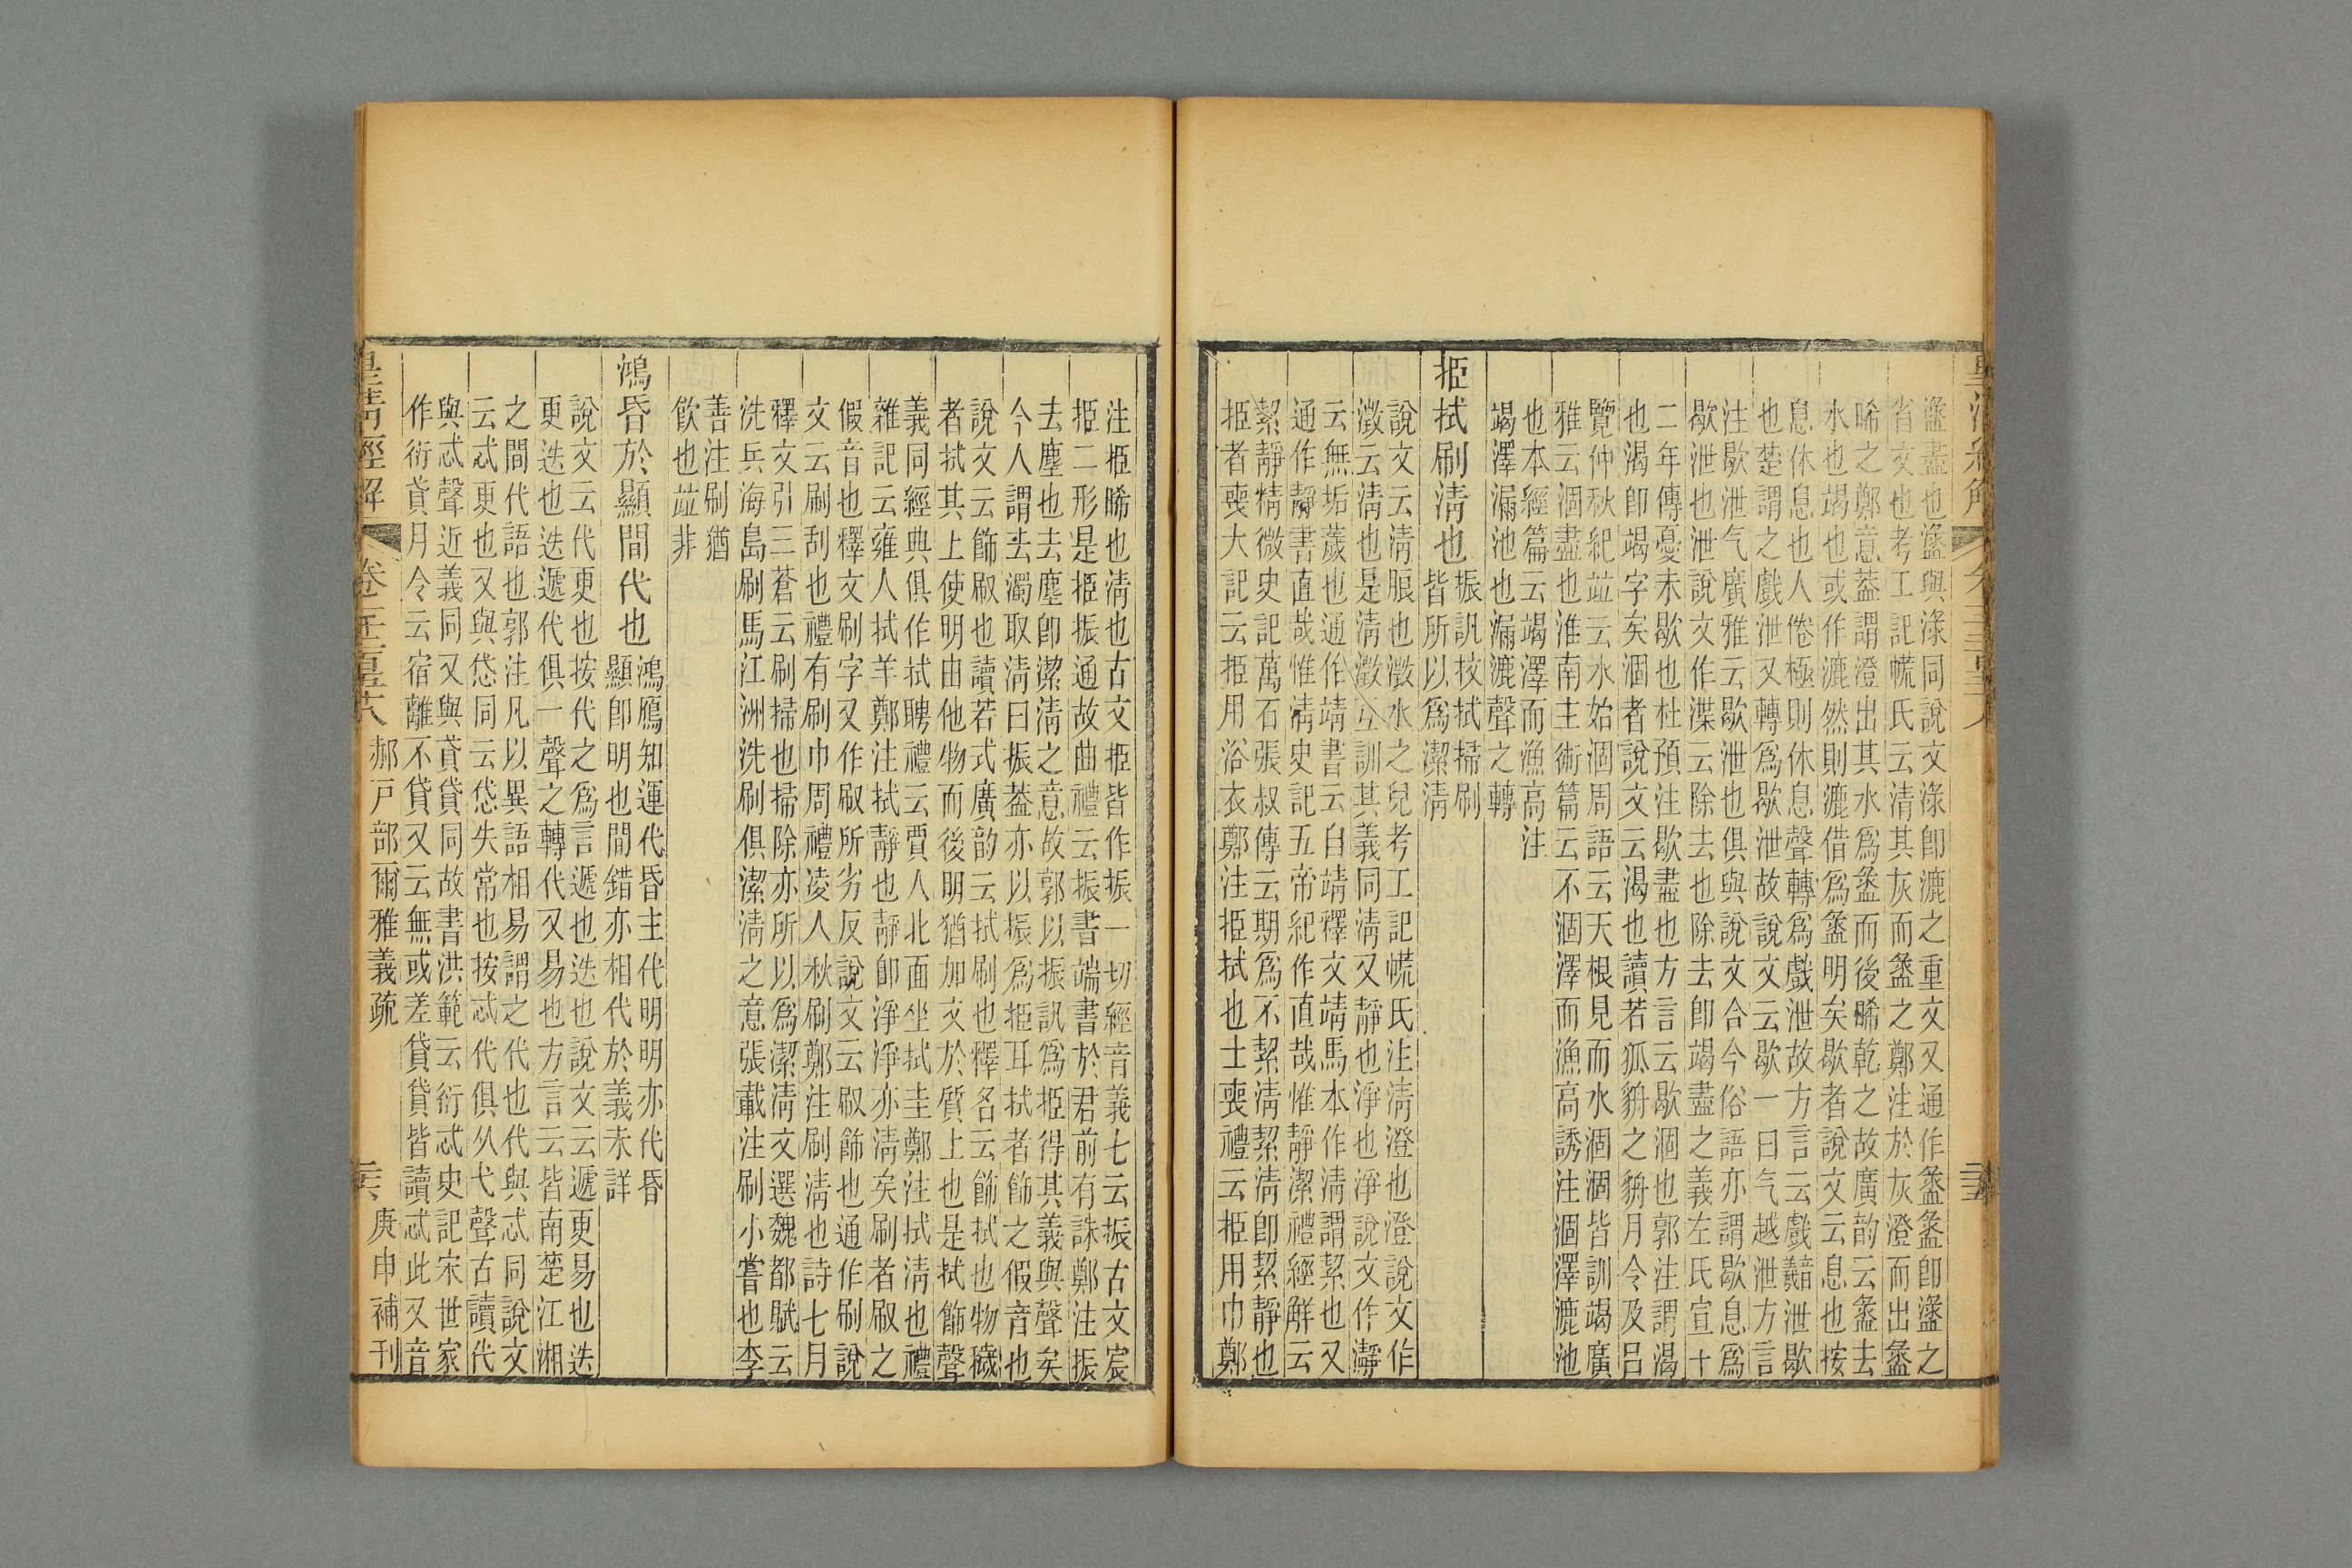 盝盡也盝與淥同說文淥卽漉之重文又通作盝盝卽盝之
省文也考工記㡛氏云清其灰而盝之鄭注於灰澄而出盝
晞之鄭意葢謂澄出其水爲盝而後晞乾之故廣韵云盝去
水也竭也或作漉然則漉借爲盝明矣歇者說文云息也按
息休息也人倦極則休息聲轉爲戲泄故方言云戲泄歇
也楚謂之戲泄又轉爲歇泄故說文云歇一曰气越泄方言
注歇泄气廣雅云歇泄也俱與說文合今俗語亦謂歇息爲
歇泄也泄說文作渫云除去也除去卽竭盡之義左氏宣十
二年傳憂未歇也杜預注歇盡也方言云歇涸也郭注謂渴
也渴卽竭字矣涸者說文云渴也讀若狐貈之貈月令及呂
覽仲秋紀竝云水始涸周語云天根見而水涸涸皆訓竭廣
雅云涸盡也淮南主術篇云不涸澤而漁高誘注涸澤漉池
也本經篇云竭澤而漁高注
竭澤漏池也漏漉聲之轉
挋拭刷清也
振訊抆拭掃刷
皆所以爲潔清
說文云清朖也澂水之皃考工記㡛氏注清澄也澄說文作
澂云清也是清澂互訓其義同清又靜也淨也淨說文作瀞
云無垢薉也通作靖書云自靖釋文靖馬本作清謂絜也又
通作靜書直哉惟清史記五帝紀作直哉惟靜潔禮經解云
絜靜精微史記萬石張叔傳云期爲不絜清絜清卽絜靜也
挋者喪大記云挋用浴衣鄭注挋拭也士喪禮云挋用巾鄭
注挋晞也清也古文挋皆作振一切經音義七云振古文宸
挋二形是挋振通故曲禮云振書端書於君前有誅鄭注振
去塵也去塵卽潔清之意故郭以振訊爲挋得其義與聲矣
今人謂去濁取清曰振葢亦以振爲挋耳拭者飾之假音也
說文云飾㕞也讀若式廣韵云拭刷也釋名云飾拭也物穢
者拭其上使明由他物而後明猶加文於質上也是拭飾聲
義同經典俱作拭聘禮云賈人北面坐拭圭鄭注拭清也禮
雜記云雍人拭羊鄭注拭靜也靜卽淨淨亦清矣刷者㕞之
假音也釋文刷字又作㕞所劣反說文云㕞飾也通作刷說
文云刷刮也禮有刷巾周禮凌人秋刷鄭注刷清也詩七月
釋文引三蒼云刷掃也掃除亦所以爲潔清文選魏都賦云
洗兵海島刷馬江洲洗刷俱潔清之意張載注刷小嘗也李
善注刷猶
飲也竝非
鴻昏於顯間代也
鴻鴈知運代昏主代明明亦代昏
顯卽明也間錯亦相代於義未詳
說文云代更也按代之爲言遞也迭也說文云遞更易也迭
更迭也迭遞代俱一聲之轉代又易也方言云皆南楚江湘
之間代語也郭注凡以異語相易謂之代也代與忒同說文
云忒更也又與怠同云怠失常也按忒代俱从弋聲古讀代
與忒聲近義同又與貣貸同故書洪範云衍忒史記宋世家
作衍貣月令云宿離不貸又云無或差貸貸皆讀忒此又音
皇清經解
卷千二百五十八
郝戶部爾雅義疏
庚申補刊